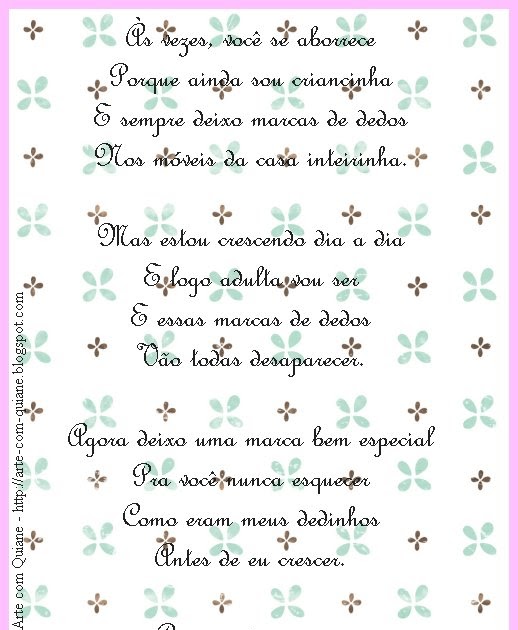 Às vezes, você se aborrece
Porque ainda sou criancinha
E sempre deixo marcas de dedos
Nos móveis da casa inteirinha.
Mas estou crescendo dia a dia
E logo adulta vou ser
E essas marcas de dedos
Vão todas desaparecer.
Agora deixo uma marca bem especial
Pra você nunca esquecer
Como eram meus dedinhos
Antes de eu crescer.
Arte com Quiane - http://arte-com-quiane.blogspot.com